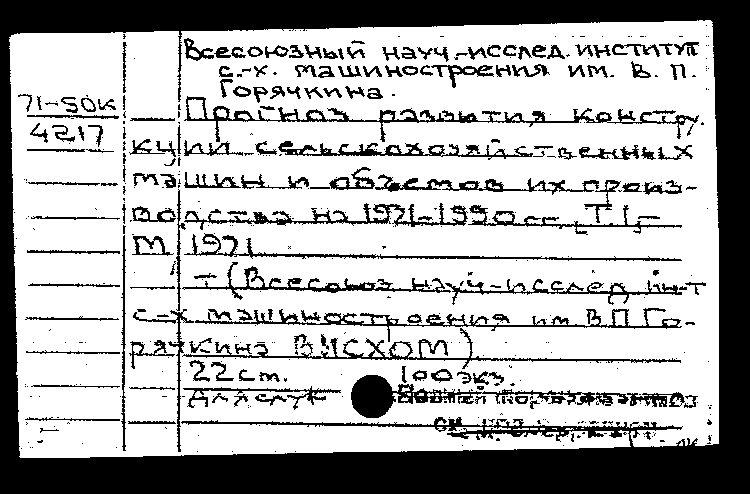 Всесоюзный науч.-исслед. институт
с.-х. машиностроения им. В. П.
Горячкина.
71-50K
4217
Прогноз развития констру-
кций сельскохозяйственных
машин и объемов их произ-
водства на 1971-1990 гг. [Т. 1]-
М 1971
- (Всесоюз науч-исслед ин-т
с-х машиностроения им В П Го-
рячкина ВИСХОМ)
22 ст. 100 экз.
Для служ